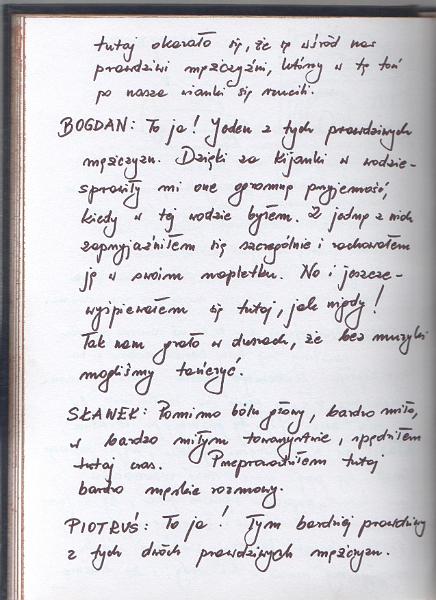 tutaj okazało się, że są wśród nas
prawdziwi mężczyźni, którzy w tę toń
po nasze wianki się rzucili.
BOGDAN: To ja! Jeden z tych prawdziwych
mężczyzn. Dzięki za kijanki w wodzie -
sprawiły mi one ogromną przyjemność,
kiedy w tej wodzie byłem. Z jedną z nich
zaprzyjaźniłem się szczególnie i zachowałem
ją w swoim napletku. No i jeszcze -
wyśpiewałem się tutaj, jak nigdy!
Tak nam grało w duszach, że bez muzyki
mogliśmy tańczyć.
SŁAWEK: Pomimo bólu głowy, bardzo miło,
w bardzo miłym towarzystwie, spędziłem
tutaj czas. Przeprowadziłem tutaj
bardzo męskie rozmowy.
PIOTRUŚ: To ja! Tym bardziej prawdziwy
z tych dwóch prawdziwych mężczyzn.